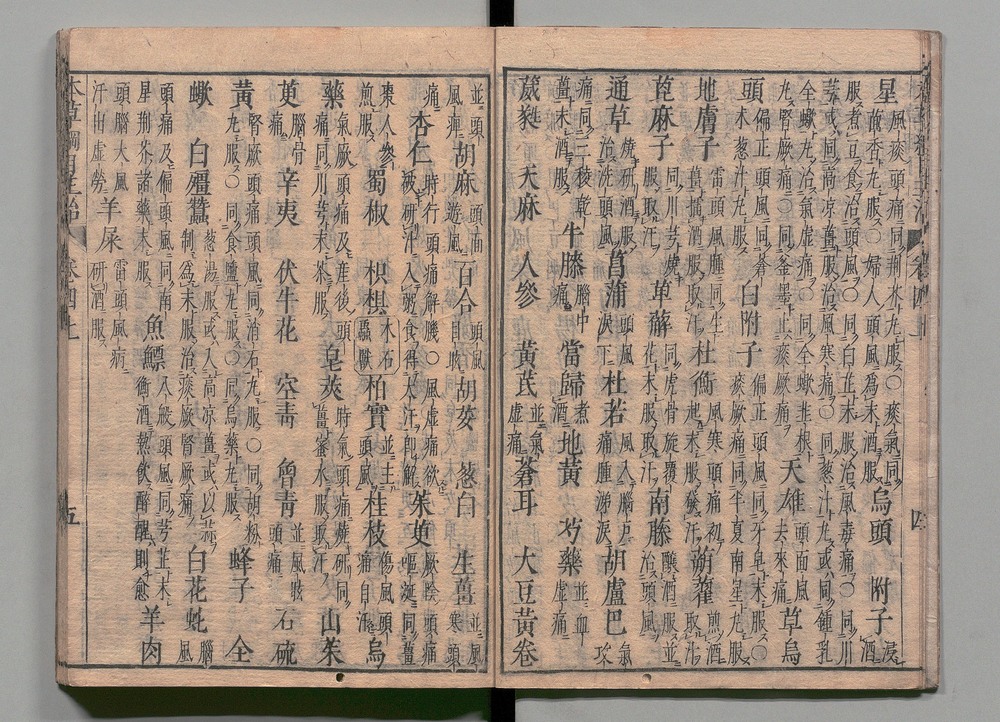 星 風痰頭痛同荊芥丸服○痰氣同茴香丸服○婦人頭風爲末酒服 烏頭 附子 浸酒
服煮豆食治頭風○同白芷末服治風毒痛○同川芎或同高涼薑服治風寒痛○同葱汁丸或同鍾乳
全蠍丸治氣虛痛○同全蠍韭根丸腎厥痛○同釜墨止痰厥痛 天雄 頭面風去來痛 草烏
頭 偏正頭風同蒼朮葱汁丸服 白附子 偏正頭風同牙皂末服○痰厥痛同半夏南星丸服
地膚子 雷頭風腫同生薑擂酒服取汗 杜衡 風寒頭痛初起末服發汗 蒴藋 煎酒取汗
萆麻子 同川芎燒服取汗 萆薢 同虎骨旋覆花末服取汗 南藤 釀酒服並治頭風
通草 燒研酒服治洗頭風 菖蒲 頭風淚下 杜若 風入腦戶痛腫涕淚 胡盧巴 氣攻
痛同三稜乾薑末酒服 牛膝 腦中痛 當歸 煮酒 地黃 芍藥 並血虛痛
葳蕤 天麻 人參 黃芪 並氣虛痛 蒼耳 大豆黃卷
四
並頭風痺 胡麻 頭面遊風 百合 頭風目眩 胡荽 葱白 生薑 並風寒頭
痛 杏仁 時行頭痛解肌○風虛痛欲破研汁入粥食得大汗即解 茱茰 厥陰頭痛嘔涎同薑
棗人參煎服 蜀椒 枳椇 木石蟲獸 柏實 並主頭風 桂枝 傷風頭痛自汗 烏
藥 氣厥頭痛及産後頭痛同川芎末茶服 皂莢 時氣頭痛燒研同薑蜜水服取汗 山茱
茰 腦骨痛 辛夷 伏牛花 空青 曾青 並風眩頭痛 石硫
黃 腎厥頭痛頭風同消石丸服○同胡粉丸服○同食鹽丸服○同烏藥丸服 蜂子 全
蠍 白殭蠶 葱湯服或入高凉薑或以蒜制爲末服治痰厥腎厥痛 白花蛇 腦風
頭痛及偏頭風同南星荊芥諸藥末服 魚鰾 八般頭風同芎芷末衝酒熱飲醉醒則愈 羊肉
頭腦大風汗出虛勞 羊屎 雷頭風研酒服
本草綱目主治 卷四上 五